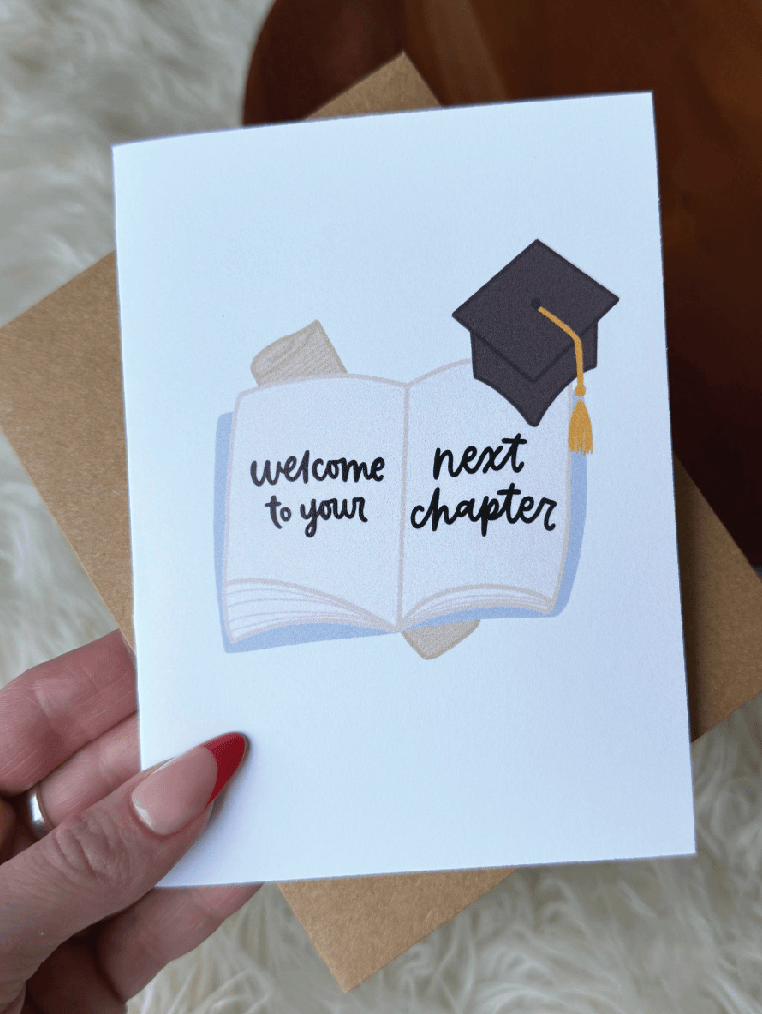 welcome
to your
next
chapter